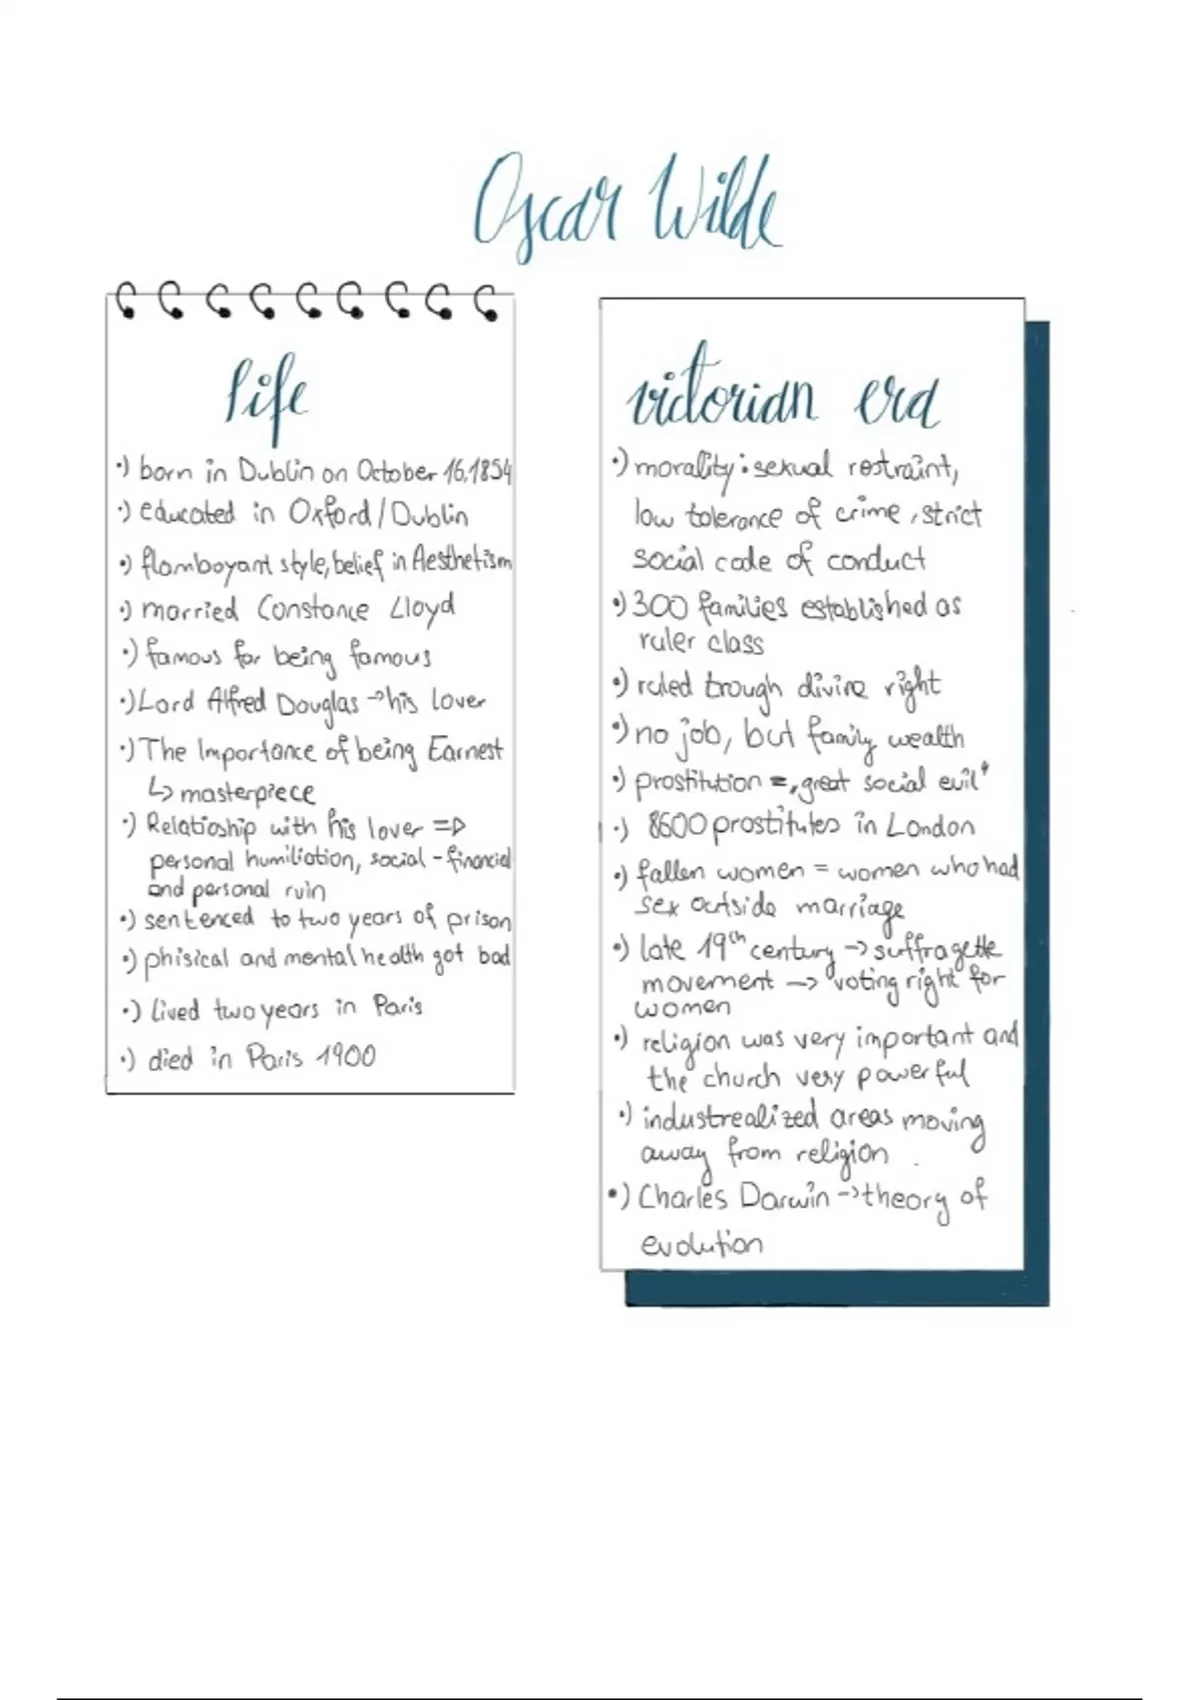 Oscar Wilde
life
•) born in Dublin on October 16, 1854
•) educated in Oxford/Dublin
•) flamboyant style, belief in Aesthetism
•) married Constance Lloyd
•) famous for being famous
•) Lord Alfred Douglas → his lover
•) The Importance of being Earnest
↳ masterpiece
•) Relatioship with his lover =>
personal humiliation, social-financial
and personal ruin
•) sentenced to two years of prison
•) phisical and mental health got bad
•) lived two years in Paris
•) died in Paris 1900
victorian era
•) morality: sexual restraint,
low tolerance of crime, strict
social code of conduct
•) 300 families established as
ruler class
•) ruled trough divine right
•) no job, but family wealth
•) prostitution = „great social evil"
•) 8600 prostitutes in London
•) fallen women = women who had
sex outside marriage
•) late 19th century → suffragette
movement → voting right for
women
•) religion was very important and
the church very powerful
•) industrealized areas moving
away from religion
•) Charles Darwin → theory of
evolution